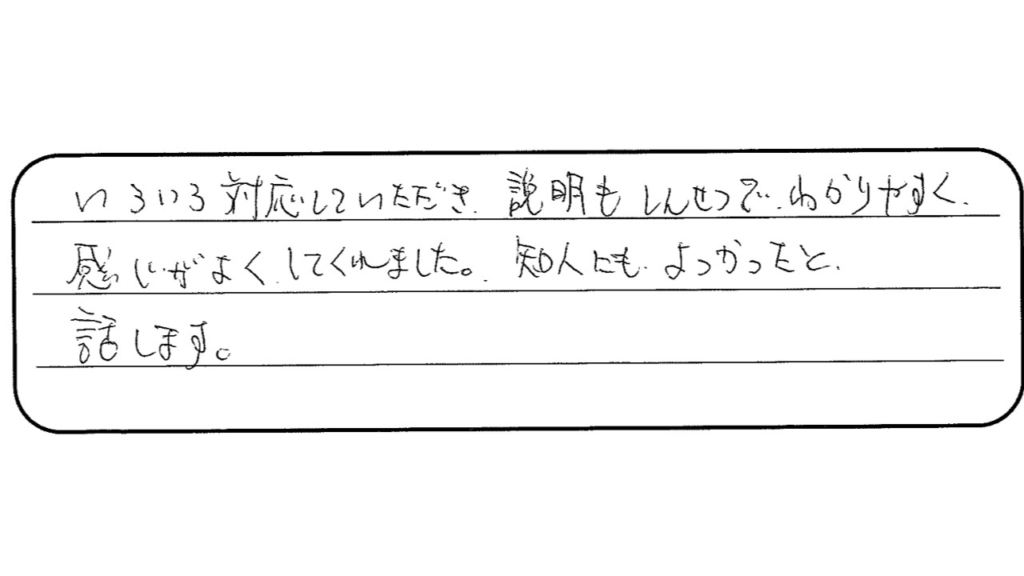 いろいろ対応していただき、説明もしんせつで、わかりやすく、
感じがよくしてくれました。知人にもよかったと、
話します。